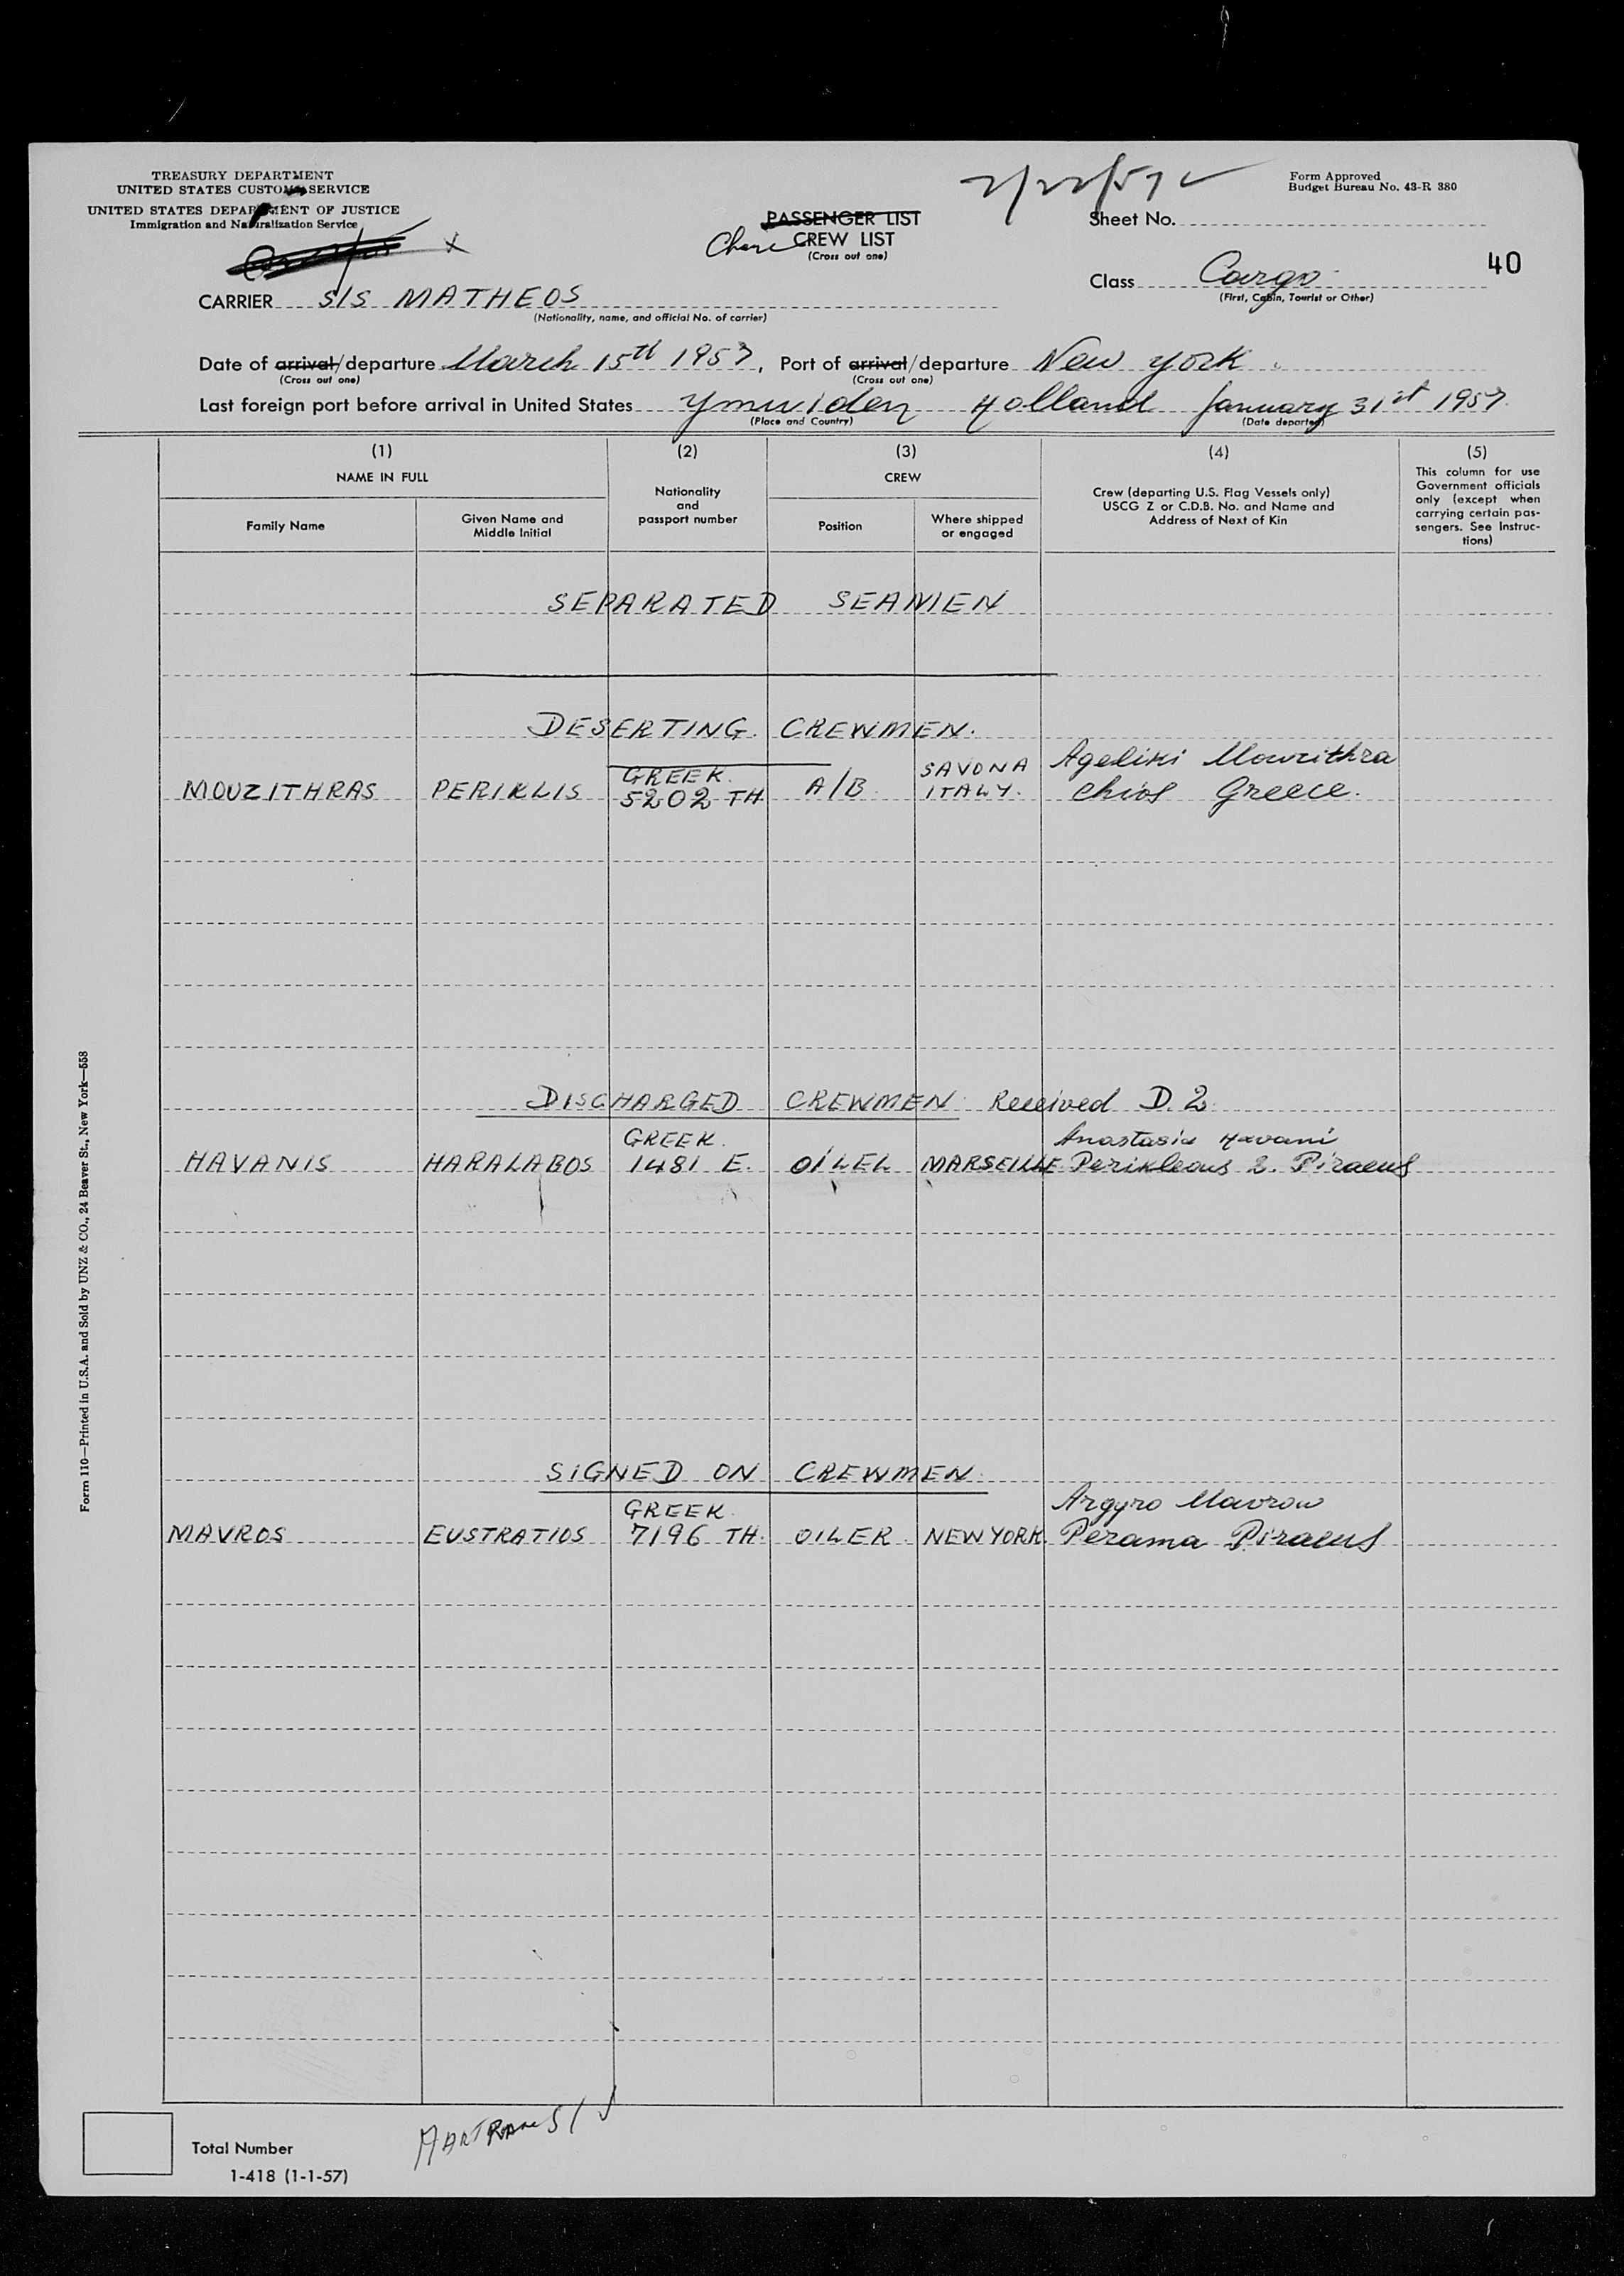 TREASURY DEPARTMENT
UNITED STATES CUSTOMS SERVICE
UNITED STATES DEPARTMENT OF JUSTICE
Immigration and Naturalization Service
2/22/57
Form Approved
Budget Bureau No. 43-R 380
PASSENGER LIST
CREW LIST
(Cross out one)
Sheet No.
40
Class Cargo
(First, Cabin, Tourist or Other)
CARRIER S/S MATHEOS
(Nationality, name, and official No. of carrier)
Date of arrival/departure March 15th 1957, Port of arrival/departure New York
(Cross out one) (Cross out one)
Last foreign port before arrival in United States Ymuiden Holland January 31st 1957
(Place and Country) (Date departed)
(1) (2) (3) (4) (5)
NAME IN FULL
Nationality and passport number
CREW
Crew (departing U.S. Flag Vessels only) USCG Z or C.D.B. No. and Name and Address of Next of Kin
This column for use Government officials only (except when carrying certain passengers. See Instructions)
Family Name Given Name and Middle Initial Position Where shipped or engaged
SEPARATED SEAMEN
DESERTING CREWMEN.
MOUZITHRAS PERIKLIS GREEK. 5202 TH A/B SAVONA ITALY. Ageliki Mouzithra Chios Greece.
DISCHARGED CREWMEN Received D.2
HAVANIS HARALABOS GREEK. 1481 E. OILEL MARSEILLE Anastasia Havani Perikleous 2. Piraeus
SIGNED ON CREWMEN.
MAVROS EUSTRATIOS GREEK. 7196 TH. OILER NEW YORK. Argyro Mavrou Perama Piraeus
Form 110—Printed in U.S.A. and Sold by UNZ & CO., 24 Beaver St., New York—558
Total Number
1-418 (1-1-57)